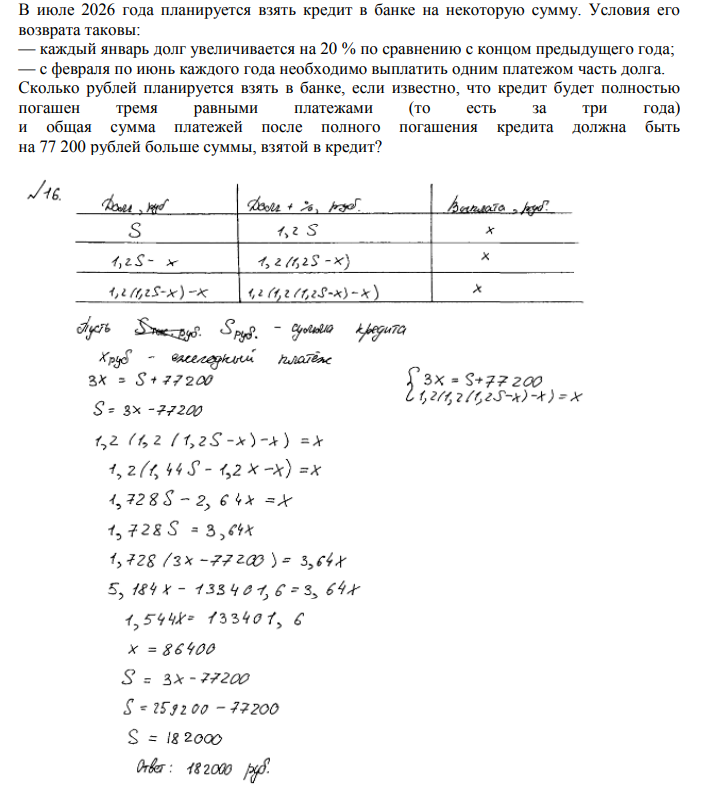 В июле 2026 года планируется взять кредит в банке на некоторую сумму. Условия его
возврата таковы:
— каждый январь долг увеличивается на 20 % по сравнению с концом предыдущего года;
— с февраля по июнь каждого года необходимо выплатить одним платежом часть долга.
Сколько рублей планируется взять в банке, если известно, что кредит будет полностью
погашен тремя равными платежами (то есть за три года)
и общая сумма платежей после полного погашения кредита должна быть
на 77 200 рублей больше суммы, взятой в кредит?
№16.
Долг, руб Долг + %, руб. Выплата, руб.
S 1,2 S x
1,2S - x 1,2(1,2S-x) x
1,2(1,2S-x)-x 1,2(1,2(1,2S-x)-x) x
Пусть S руб. - сумма кредита
x руб - ежегодный платёж
3x = S + 77200 { 3x = S+77200
S = 3x - 77200 1,2(1,2(1,2S-x)-x) = x
1,2(1,2(1,2S-x)-x) = x
1,2(1,44S - 1,2x - x) = x
1,728S - 2,64x = x
1,728S = 3,64x
1,728(3x - 77200) = 3,64x
5,184x - 133401,6 = 3,64x
1,544x = 133401,6
x = 86400
S = 3x - 77200
S = 259200 - 77200
S = 182000
Ответ: 182000 руб.